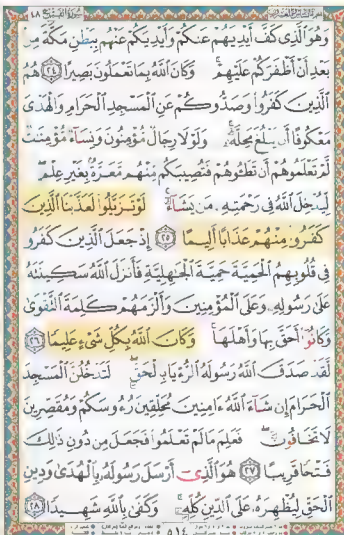 سورة الفتح ٤٨
وَهُوَ ٱلَّذِى كَفَّ أَيْدِيَهُمْ عَنكُمْ وَأَيْدِيَكُمْ عَنْهُم بِبَطْنِ مَكَّةَ مِنۢ
بَعْدِ أَنْ أَظْفَرَكُمْ عَلَيْهِمْ ۚ وَكَانَ ٱللَّهُ بِمَا تَعْمَلُونَ بَصِيرًا ﴿٢٤﴾ هُمُ
ٱلَّذِينَ كَفَرُوا۟ وَصَدُّوكُمْ عَنِ ٱلْمَسْجِدِ ٱلْحَرَامِ وَٱلْهَدْىَ
مَعْكُوفًا أَن يَبْلُغَ مَحِلَّهُۥ ۚ وَلَوْلَا رِجَالٌ مُّؤْمِنُونَ وَنِسَآءٌ مُّؤْمِنَٰتٌ
لَّمْ تَعْلَمُوهُمْ أَن تَطَـُٔوهُمْ فَتُصِيبَكُم مِّنْهُم مَّعَرَّةٌۢ بِغَيْرِ عِلْمٍ ۖ
لِّيُدْخِلَ ٱللَّهُ فِى رَحْمَتِهِۦ مَن يَشَآءُ ۚ لَوْ تَزَيَّلُوا۟ لَعَذَّبْنَا ٱلَّذِينَ
كَفَرُوا۟ مِنْهُمْ عَذَابًا أَلِيمًا ﴿٢٥﴾ إِذْ جَعَلَ ٱلَّذِينَ كَفَرُوا۟
فِى قُلُوبِهِمُ ٱلْحَمِيَّةَ حَمِيَّةَ ٱلْجَٰهِلِيَّةِ فَأَنزَلَ ٱللَّهُ سَكِينَتَهُۥ
عَلَىٰ رَسُولِهِۦ وَعَلَى ٱلْمُؤْمِنِينَ وَأَلْزَمَهُمْ كَلِمَةَ ٱلتَّقْوَىٰ
وَكَانُوٓا۟ أَحَقَّ بِهَا وَأَهْلَهَا ۚ وَكَانَ ٱللَّهُ بِكُلِّ شَىْءٍ عَلِيمًا ﴿٢٦﴾
لَّقَدْ صَدَقَ ٱللَّهُ رَسُولَهُ ٱلرُّءْيَا بِٱلْحَقِّ ۖ لَتَدْخُلُنَّ ٱلْمَسْجِدَ
ٱلْحَرَامَ إِن شَآءَ ٱللَّهُ ءَامِنِينَ مُحَلِّقِينَ رُءُوسَكُمْ وَمُقَصِّرِينَ
لَا تَخَافُونَ ۖ فَعَلِمَ مَا لَمْ تَعْلَمُوا۟ فَجَعَلَ مِن دُونِ ذَٰلِكَ
فَتْحًا قَرِيبًا ﴿٢٧﴾ هُوَ ٱلَّذِىٓ أَرْسَلَ رَسُولَهُۥ بِٱلْهُدَىٰ وَدِينِ
ٱلْحَقِّ لِيُظْهِرَهُۥ عَلَى ٱلدِّينِ كُلِّهِۦ ۚ وَكَفَىٰ بِٱللَّهِ شَهِيدًا ﴿٢٨﴾
٥١٤